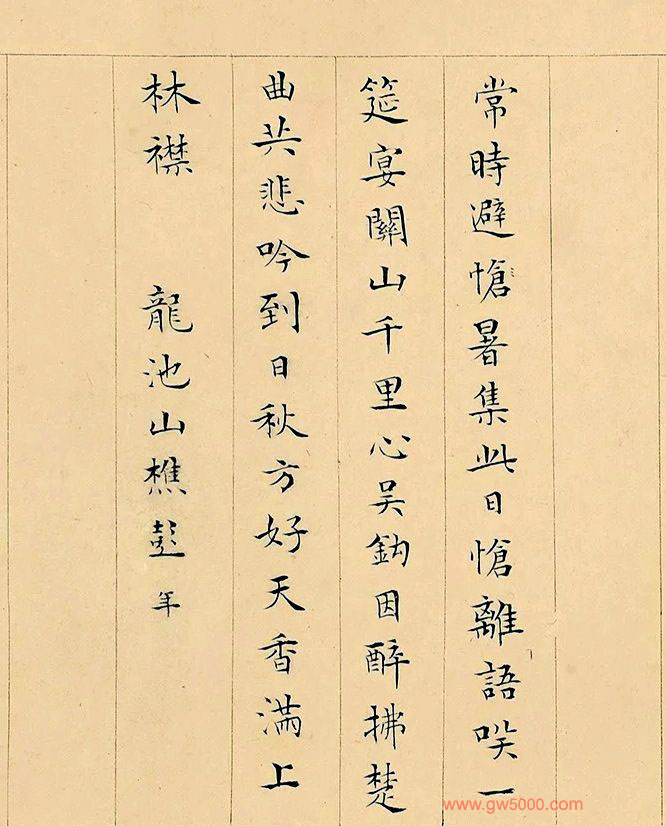 常時避愴暑集此日愴離語唉一
筵宴關山千里心吴鈎因醉拂楚
曲共悲吟到日秋方好天香滿上
林襟 龍池山樵彭年
www.gw5000.com